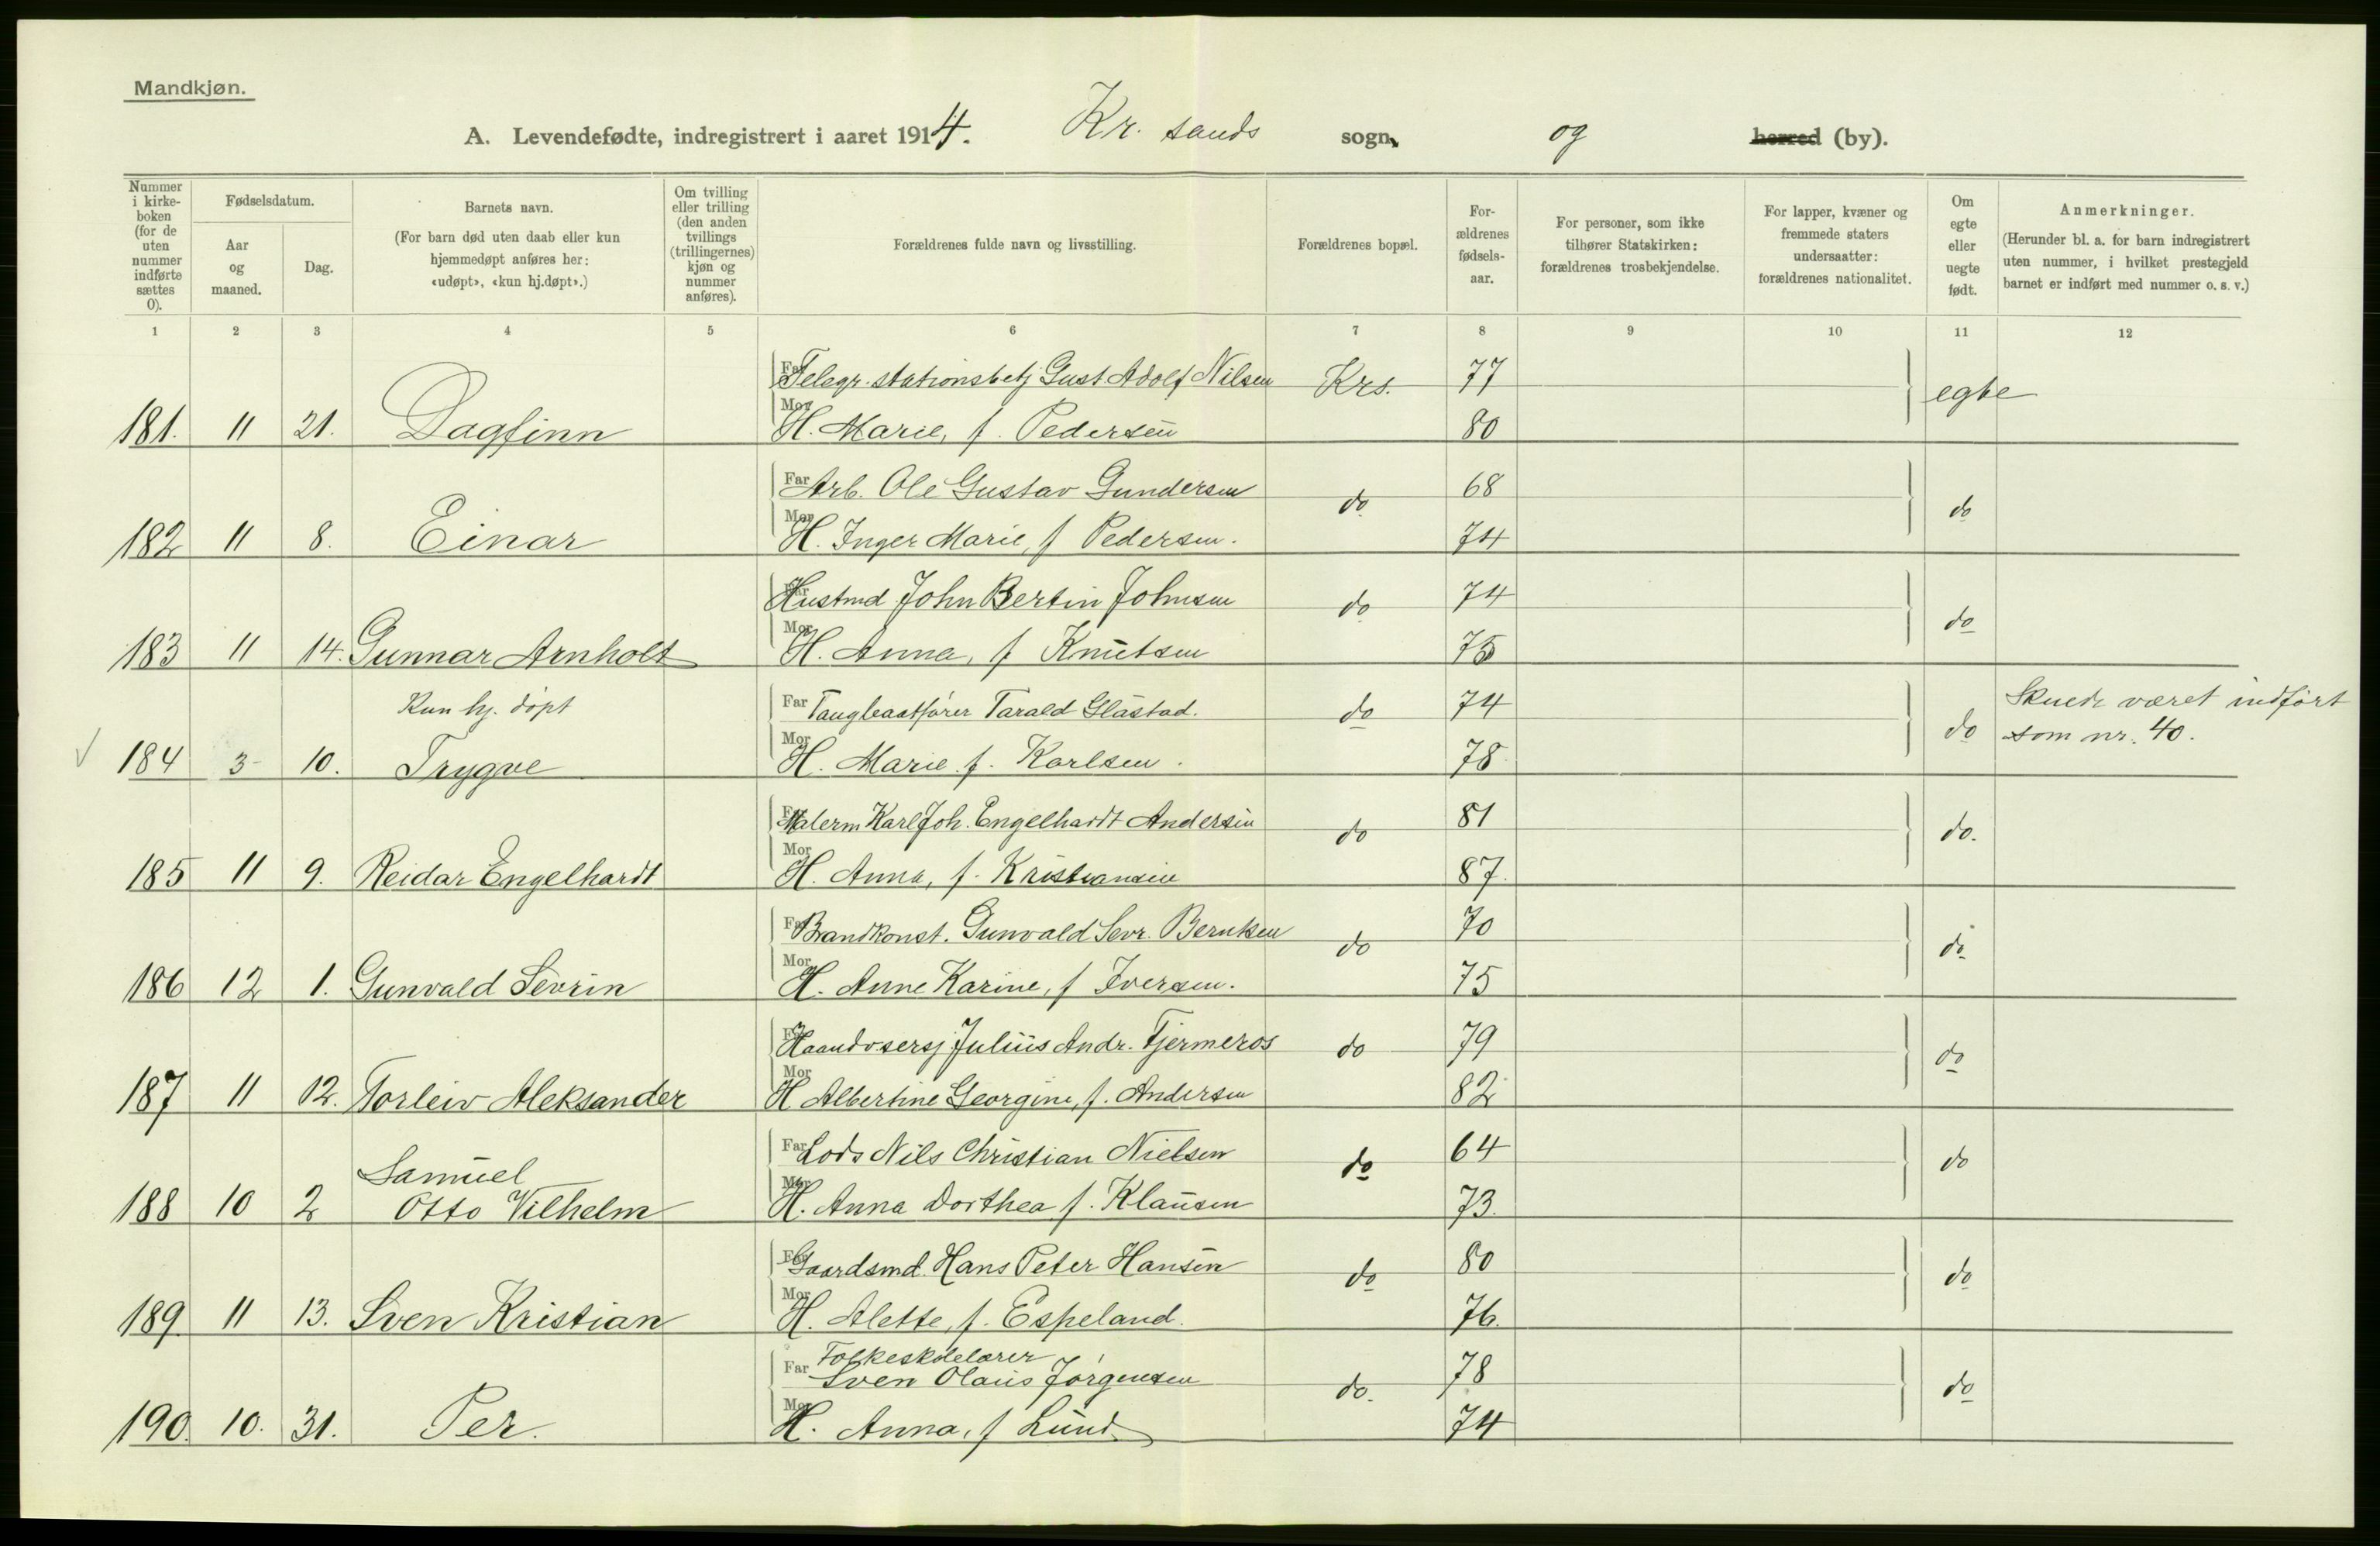 Mandkjøn.
A. Levendefødte, indregistrert i aaret 1914. Kr. sands sogn og herred (by).
Nummer i kirke-boken (for de uten nummer indførte sættes 0).
Fødselsdatum.
Aar og maaned.
Dag.
Barnets navn.
(For barn død uten daab eller kun hjemmedøpt anføres her: «udøpt», «kun hj.døpt».)
Om tvilling eller trilling (den anden tvillings (trillingernes) kjøn og nummer anføres).
Forældrenes fulde navn og livsstilling.
Forældrenes bopæl.
For-ældrenes fødsels-aar.
For personer, som ikke tilhører Statskirken: forældrenes trosbekjendelse.
For lapper, kvæner og fremmede staters undersaatter: forældrenes nationalitet.
Om egte eller uegte født.
Anmerkninger.
(Herunder bl. a. for barn indregistrert uten nummer, i hvilket prestegjeld barnet er indført med nummer o. s. v.)
1 2 3 4 5 6 7 8 9 10 11 12
Far Telegr. stationsbetj Gust Adolf Nilsen Krs. 77 egte
181. 11 21. Dagfinn Mor H. Marie, f. Pedersen 80
Far Arb. Ole Gustav Gundersen do 68 do
182 11 8. Einar Mor H. Inger Marie, f Pedersen. 74
Far Hustmd John Bertin Johnsen do 74 do
183 11 14. Gunnar Arnholt Mor H. Anna, f Knutsen 75
Kun hj. døpt Far Tarald Glastad. do 74 do Skuede været indført som nr. 40.
184 3 10. Trygve Mor H. Marie f. Karlsen. 78
Far Malerm Karl Joh. Engelhardt Andersen do 81 do.
185 11 9. Reidar Engelhardt Mor H. Anna, f. Kristiansen 87.
Far Brandkonst. Gunvald Sevr. Berntsen do 70 do
186 12 1. Gunvald Sevrin Mor H. Anne Karine, f Iversen. 75
Far Julius Andr. Tjermeros do 79 do
187 11 12. Torleiv Aleksander Mor H. Albertine Georgine, f. Andersen 82
Samuel Far Lods Nils Christian Nielsen do 64 do
188 10 2 Otto Vilhelm Mor H. Anna Dorthea f. Klausen 73.
Far Gaardsmd. Hans Peter Hansen do 80 do
189. 11 13. Sven Kristian Mor H. Alette, f. Espeland. 76.
Folkeskolelærer
Far Sven Olaus Jørgensen do. 78 do
190. 10. 31. Per. Mor H. Anna, f Lund 74